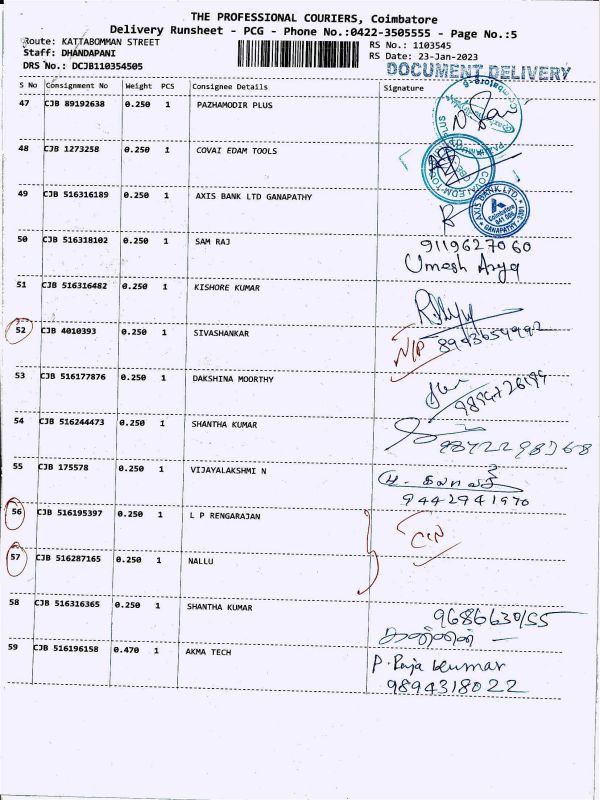 THE PROFESSIONAL COURIERS, Coimbatore
Delivery Runsheet - PCG - Phone No.:0422-3505555 - Page No.:5
Route: KATTABOMMAN STREET
RS No.: 1103545
Staff: DHANDAPANI
RS Date: 23-Jan-2023
DRS No.: DCJB110354505
DOCUMENT DELIVERY
S No Consignment No Weight PCS Consignee Details Signature
47 CJB 89192638 0.250 1 PAZHAMODIR PLUS
48 CJB 1273258 0.250 1 COVAI EDAM TOOLS
49 CJB 516316189 0.250 1 AXIS BANK LTD GANAPATHY
AXIS BANK LTD.
Coimbatore
GANAPATHY
50 CJB 516318102 0.250 1 SAM RAJ
9119627060
Umesh Arya
51 CJB 516316482 0.250 1 KISHORE KUMAR
52 CJB 4010393 0.250 1 SIVASHANKAR
N/P
53 CJB 516177876 0.250 1 DAKSHINA MOORTHY
54 CJB 516244473 0.250 1 SHANTHA KUMAR
55 CJB 175578 0.250 1 VIJAYALAKSHMI N
9442941970
56 CJB 516195397 0.250 1 L P RENGARAJAN
57 CJB 516287165 0.250 1 NALLU
58 CJB 516316365 0.250 1 SHANTHA KUMAR
9686630155
59 CJB 516196158 0.470 1 AKMA TECH
P. Raja kumar
9894318022